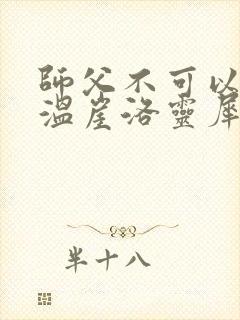 師父不可以
溫崖洛靈犀
半十八